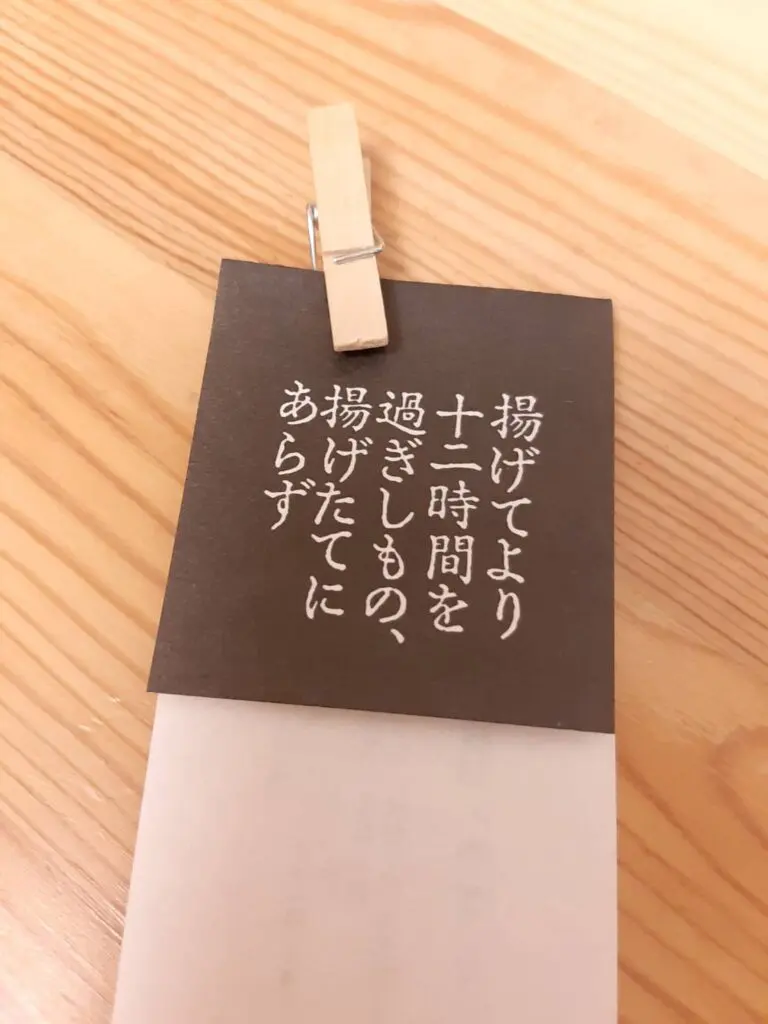 揚げてより
十二時間を
過ぎしもの、
揚げたてに
あらず